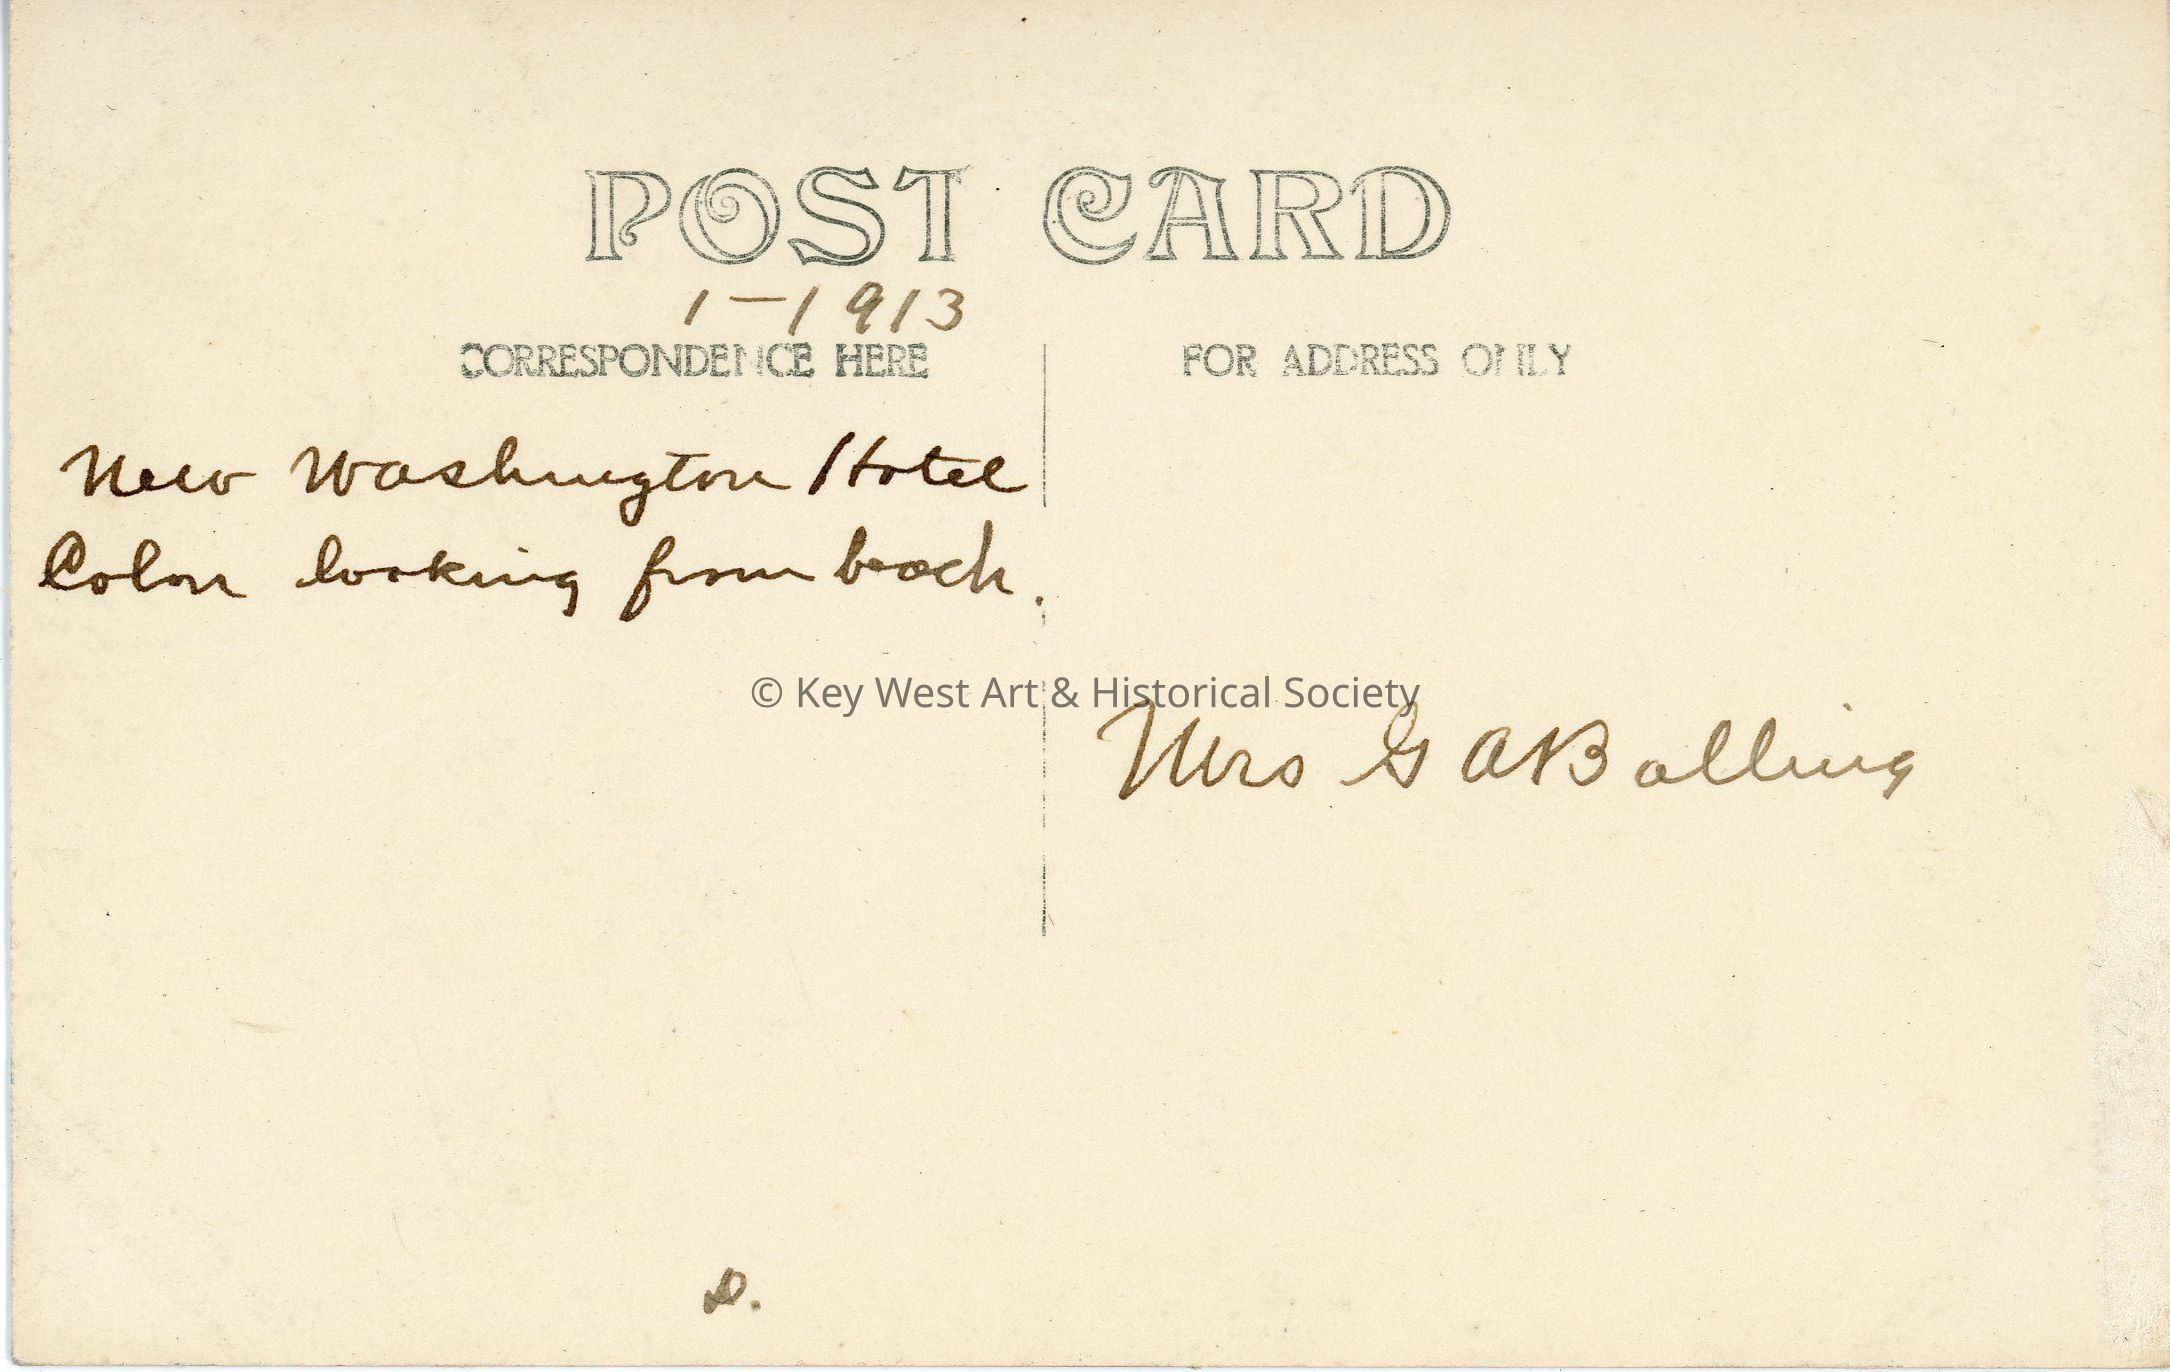 POST CARD
1-1913
CORRESPONDENCE HERE
FOR ADDRESS ONLY
New Washington Hotel
Colon looking from beach.
© Key West Art & Historical Society
Mrs G A Bolling
D.